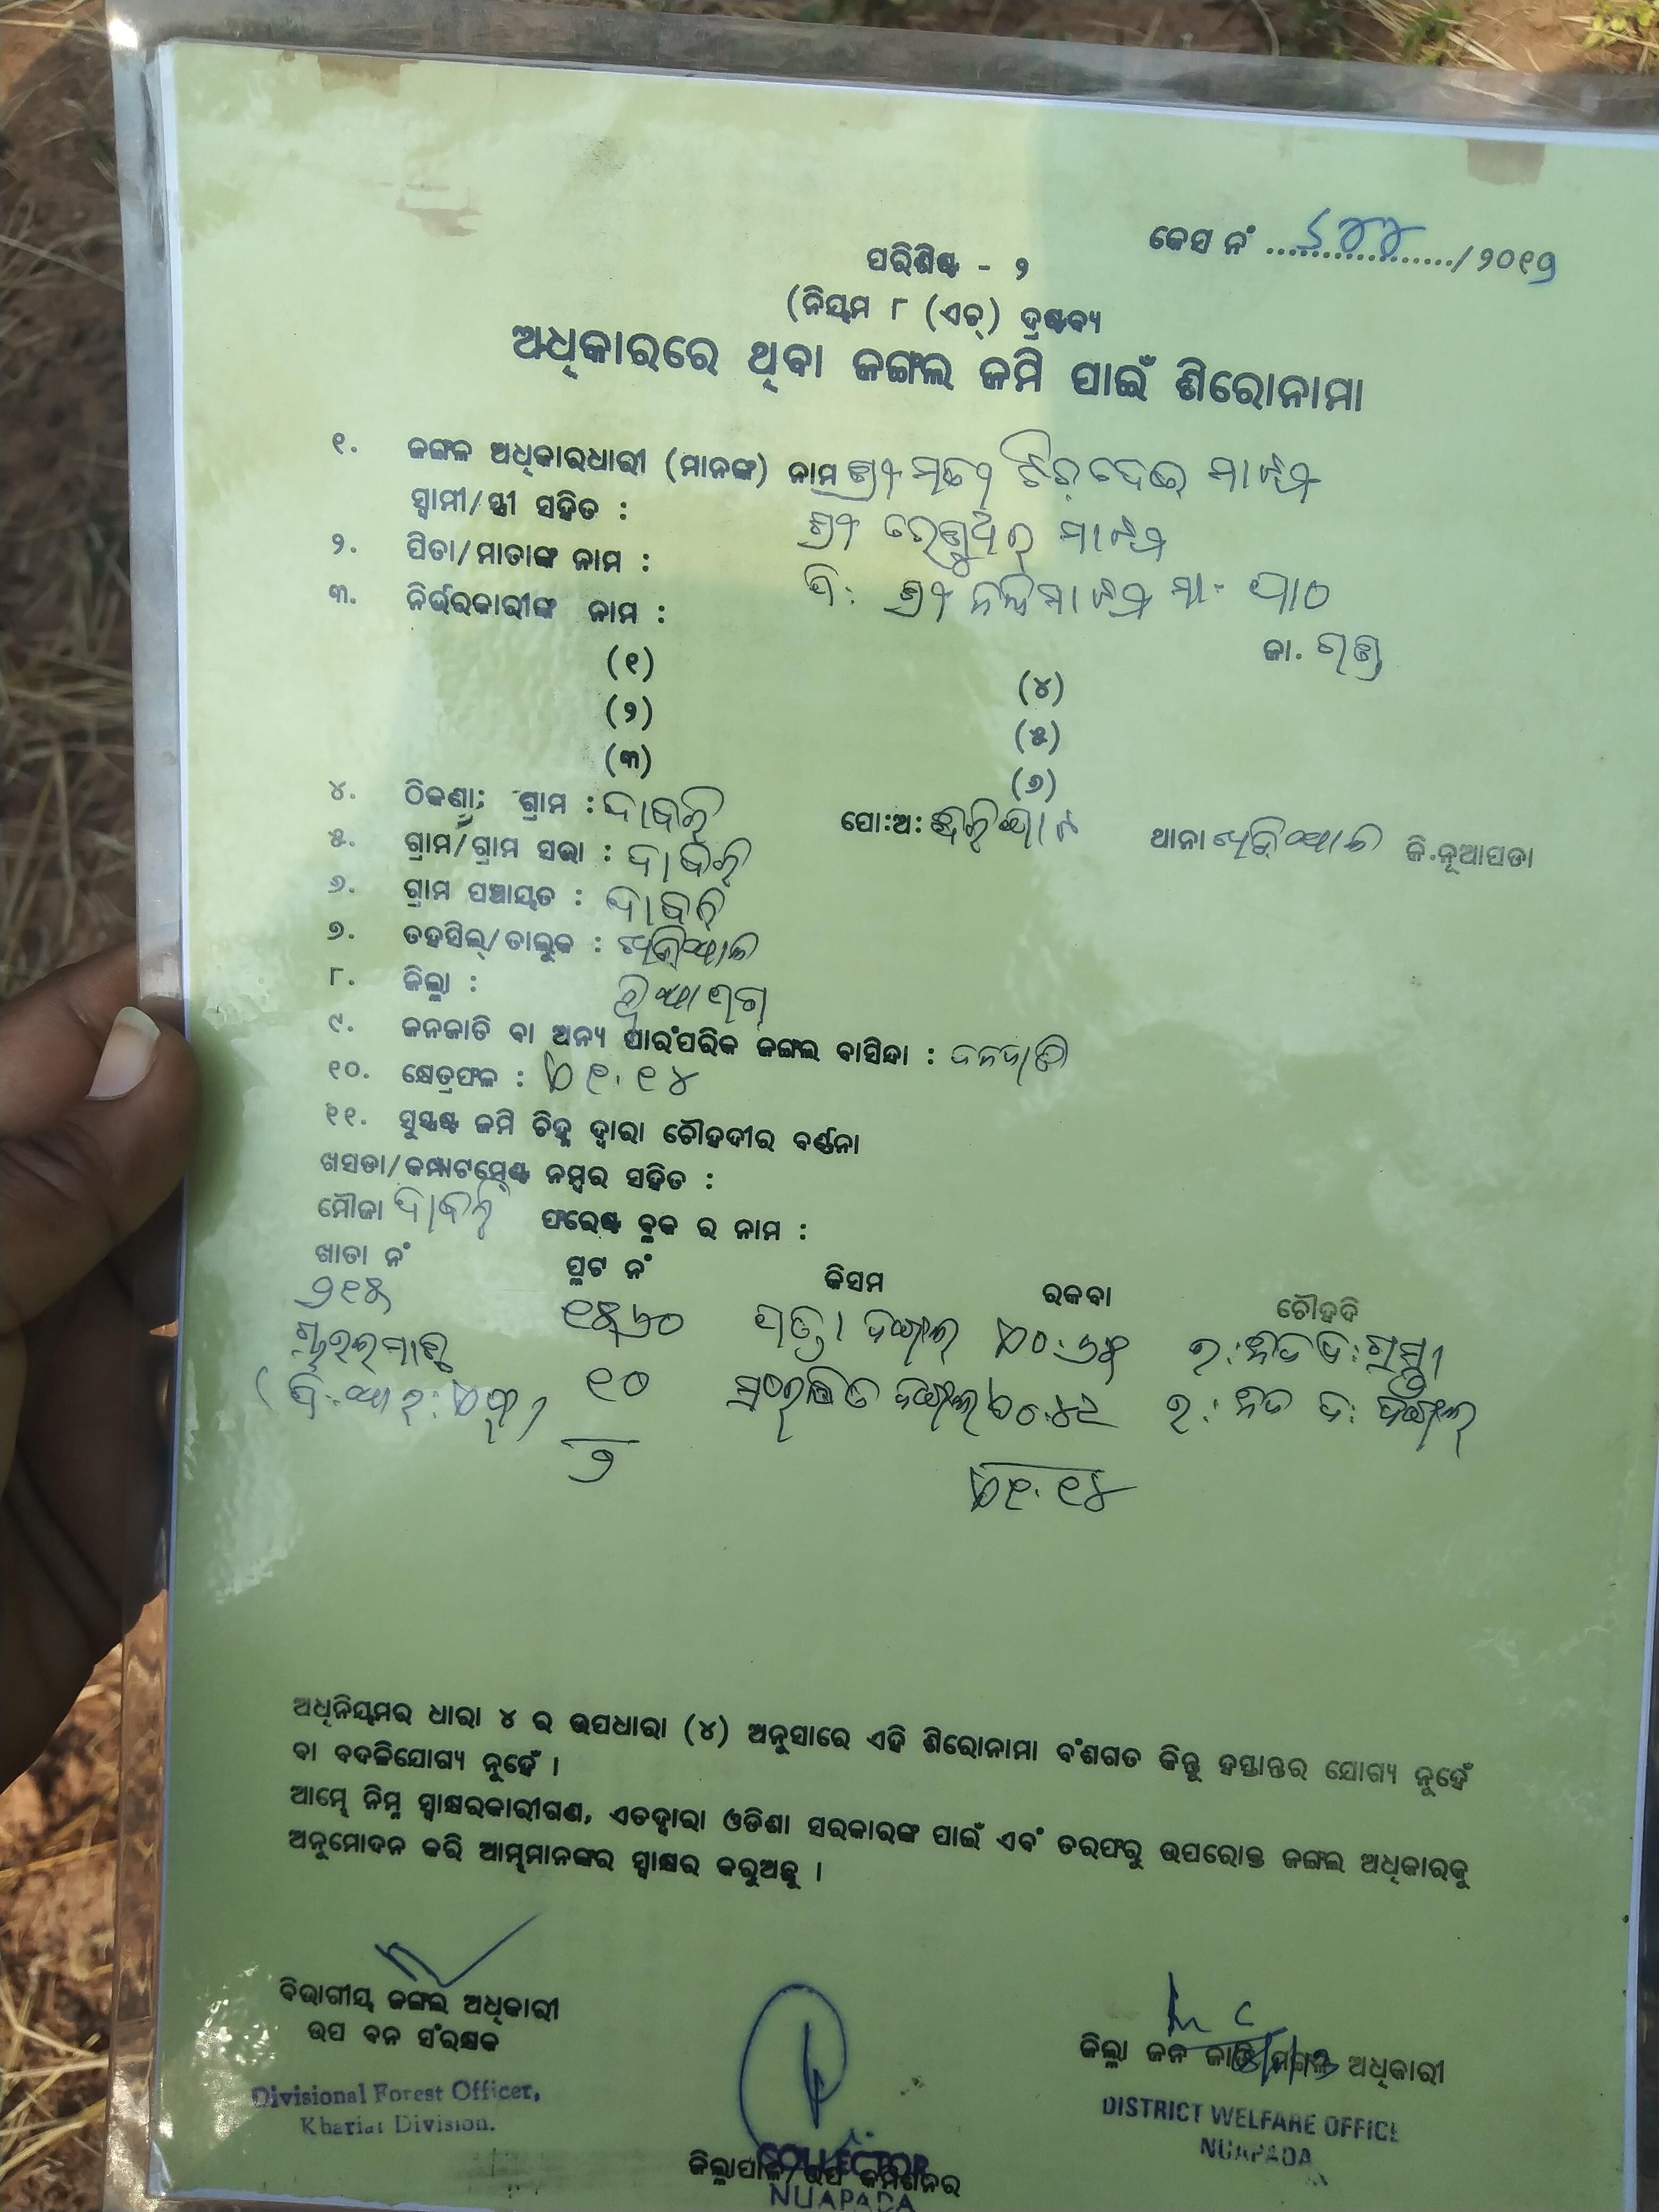 କେସ ନଂ ................../୨୦୧୨
ପରିଶିଷ୍ଟ - ୨
(ନିୟମ ୮ (ଏଚ୍) ଦ୍ରଷ୍ଟବ୍ୟ
ଅଧିକାରରେ ଥିବା ଜଙ୍ଗଲ ଜମି ପାଇଁ ଶିରୋନାମା
୧. ଜଙ୍ଗଳ ଅଧିକାରଧାରୀ (ମାନଙ୍କ) ନାମ ଶ୍ରୀମତୀ ମାଝୀ
ସ୍ୱାମୀ/ସ୍ତ୍ରୀ ସହିତ : ଶ୍ରୀ ମାଝୀ
୨. ପିତା/ମାତାଙ୍କ ନାମ : ପି: ଶ୍ରୀ ମାଝୀ
୩. ନିର୍ଭରକାରୀଙ୍କ ନାମ : ଜା. ଗଣ୍ଡ
(୧) (୪)
(୨) (୫)
(୩) (୬)
୪. ଠିକଣା; ଗ୍ରାମ : ଦାବରି ପୋ:ଅ: ଥାନା ଖରିଆର ଜି.ନୂଆପଡା
୫. ଗ୍ରାମ/ଗ୍ରାମ ସଭା : ଦାବରି
୬. ଗ୍ରାମ ପଞ୍ଚାୟତ : ଦାବରି
୭. ତହସିଲ୍/ତାଲୁକ : ଖରିଆର
୮. ଜିଲ୍ଲା : ନୂଆପଡା
୯. ଜନଜାତି ବା ଅନ୍ୟ ପାରଂପରିକ ଜଙ୍ଗଲ ବାସିନ୍ଦା : ଜନଜାତି
୧୦. କ୍ଷେତ୍ରଫଳ : ୧.୧୪
୧୧. ସୁସ୍ପଷ୍ଟ ଜମି ଚିହ୍ନ ଦ୍ୱାରା ଚୌହଦୀର ବର୍ଣ୍ଣନା
ଖସଡା/କମ୍ପାଟମେଣ୍ଟ ନମ୍ବର ସହିତ :
ମୌଜା ଦାବରି ଫରେଷ୍ଟ ବ୍ଲକ ର ନାମ :
ଖାତା ନଂ ପ୍ଲଟ ନଂ କିସମ ରକବା ଚୌହଦି
୨୧୫ ୧୫୬୦ ପତ୍ର ଜଙ୍ଗଲ ୦.୬୫
୧୦ ସଂରକ୍ଷିତ ଜଙ୍ଗଲ ୦.୪୯ ଜଙ୍ଗଲ
୨ ୧.୧୪
ଅଧିନିୟମର ଧାରା ୪ ର ଉପଧାରା (୪) ଅନୁସାରେ ଏହି ଶିରୋନାମା ବଂଶଗତ କିନ୍ତୁ ହସ୍ତାନ୍ତର ଯୋଗ୍ୟ ନୁହେଁ
ବା ବଦଳିଯୋଗ୍ୟ ନୁହେଁ ।
ଆମ୍ଭେ ନିମ୍ନ ସ୍ୱାକ୍ଷରକାରୀଗଣ, ଏତଦ୍ୱାରା ଓଡିଶା ସରକାରଙ୍କ ପାଇଁ ଏବଂ ତରଫରୁ ଉପରୋକ୍ତ ଜଙ୍ଗଲ ଅଧିକାରକୁ
ଅନୁମୋଦନ କରି ଆମ୍ଭମାନଙ୍କର ସ୍ୱାକ୍ଷର କରୁଅଛୁ ।
ବିଭାଗୀୟ ଜଙ୍ଗଲ ଅଧିକାରୀ
ଉପ ବନ ସଂରକ୍ଷକ
Divisional Forest Officer,
Khariar Division.
ଜିଲ୍ଲା ଜନ ଜାତି ମଙ୍ଗଳ ଅଧିକାରୀ
DISTRICT WELFARE OFFICE
NUAPADA
COLLECTOR
ଜିଲ୍ଲାପାଳ/ଉପ କମିଶନର
NUAPADA